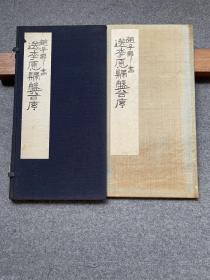 趙子昂書
送李愿歸盤谷序
趙子昂書
送李愿歸盤谷序